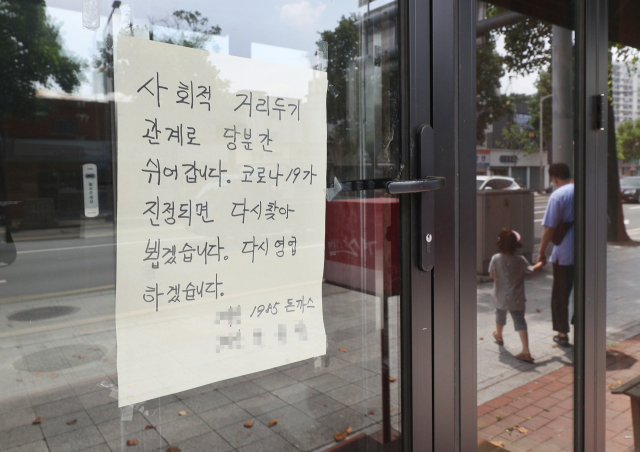 사회적 거리두기
관계로 당분간
쉬어갑니다. 코로나19가
진정되면 다시찾아
뵙겠습니다. 다시영업
하겠습니다.
1985 돈까스